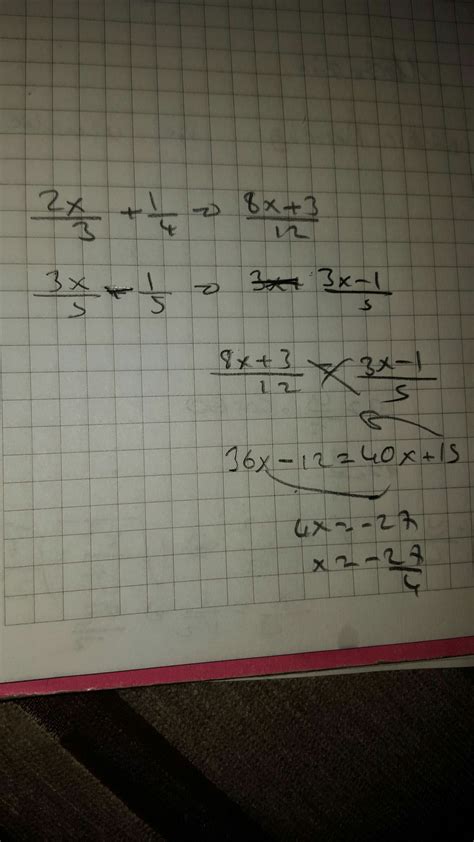 2x/3 + 1/4 ⇒ 8x+3/12
3x/5 - 1/5 ⇒ 3x-1/5
8x+3/12 = 3x-1/5
36x-12=40x+15
4x=-27
x=-27/4